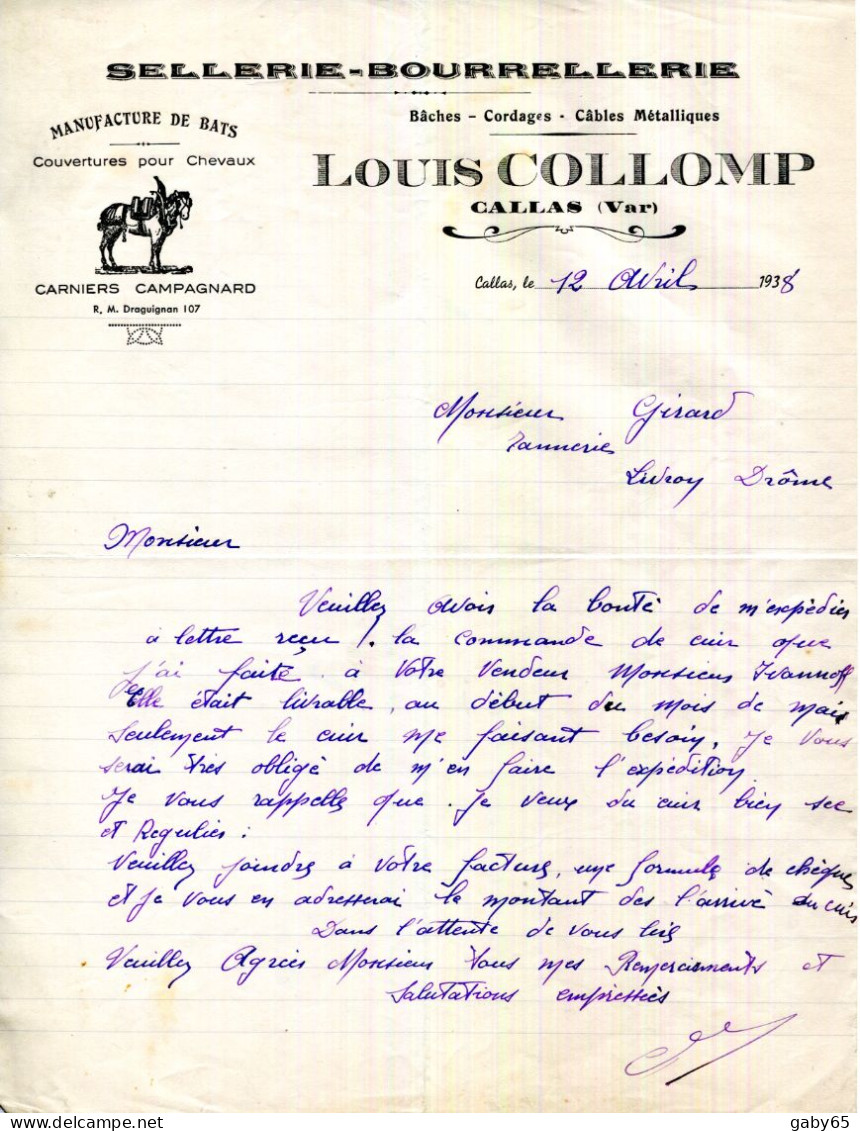 SELLERIE-BOURRELLERIE
MANUFACTURE DE BATS
Couvertures pour Chevaux
CARNIERS CAMPAGNARD
R. M. Draguignan 107
Bâches - Cordages - Câbles Métalliques
LOUIS COLLOMP
CALLAS (Var)
Callas, le 12 Avril 1938
Monsieur Girard
Tannerie
Livroy Drôme
Monsieur
Veuillez avoir la bonté de m'expédier
à lettre reçu la commande de cuir que
j'ai faite à Votre Vendeur Monsieur Ivannoff
Elle était livrable, au début du mois de mai
Seulement le cuir me faisant besoin, Je Vous
serai très obligé de m'en faire l'expédition
Je vous rappelle que Je veux du cuir bien sec
et Regulier :
Veuillez joindre à Votre facture, une formule de chèque
et Je vous en adresserai le montant des l'arrivé du cuir
Dans l'attente de vous lire
Veuillez Agréer Monsieur tous mes Remerciements et
Salutations empressées
gaby65